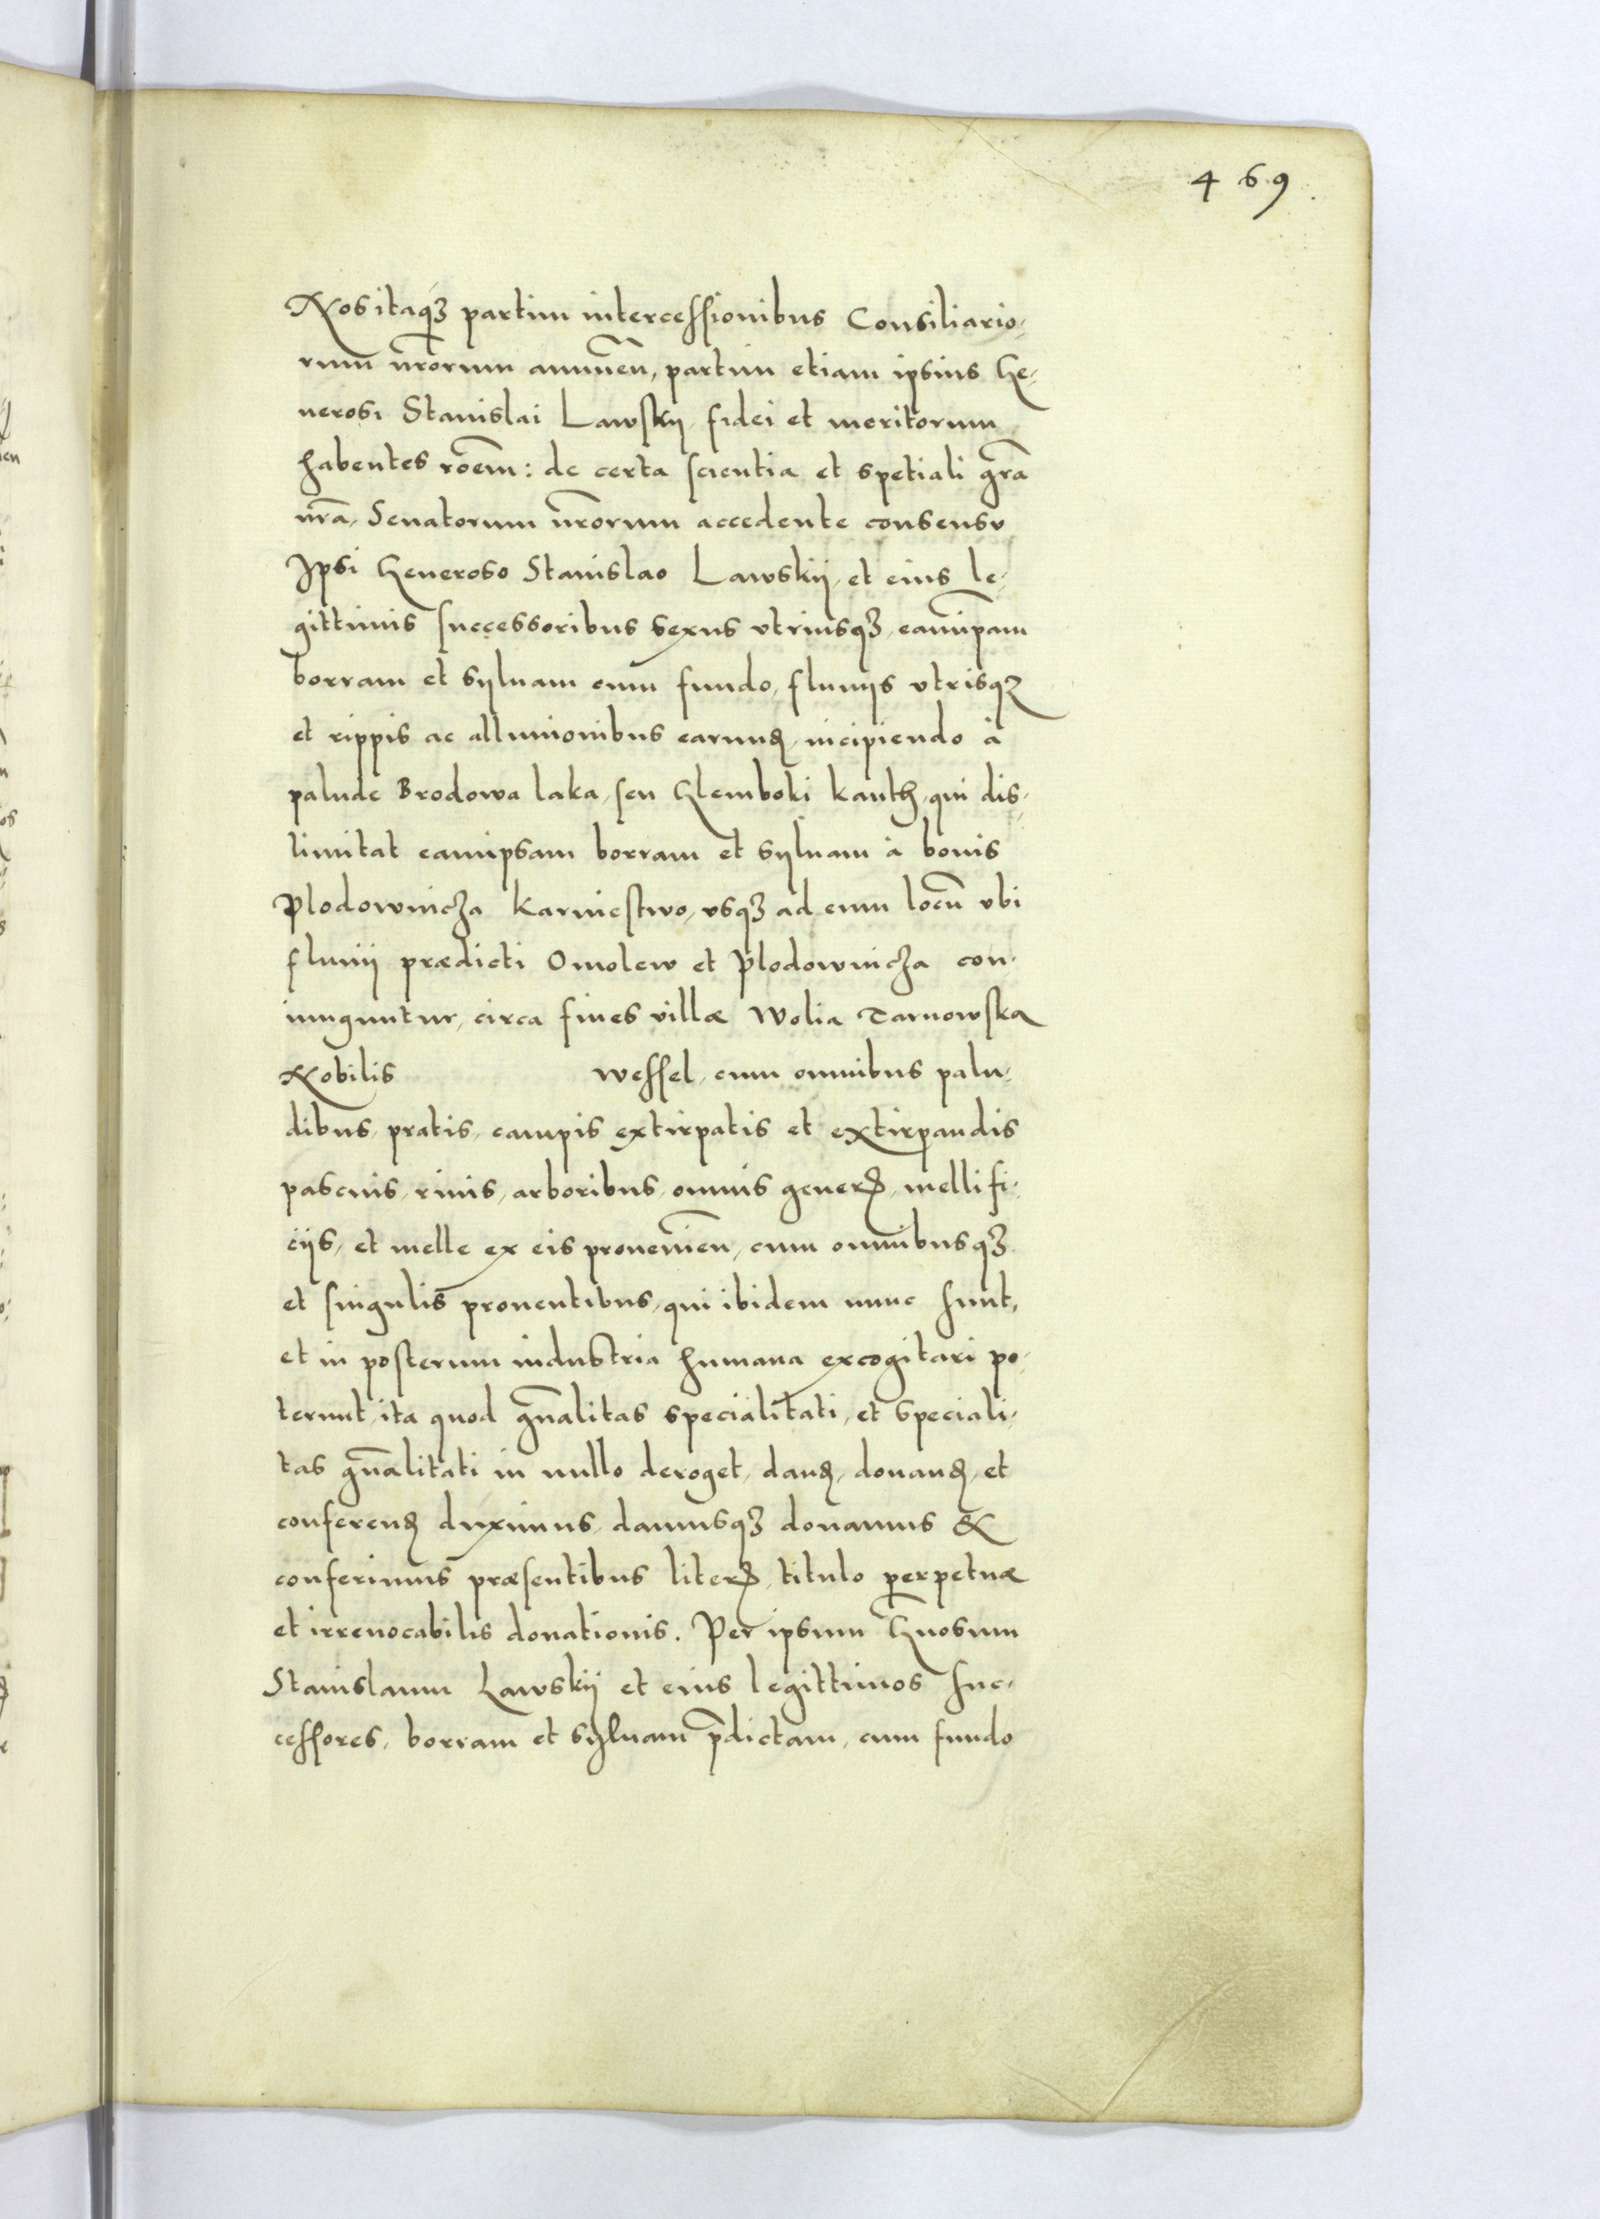 469
Nos itaqȝ partim intercessionibus Consiliario,
rum nr̃orum annuen̄, partim etiam ipsius Ge,
nerosi Stanislai Lawskij, fidei et meritorum
habentes rõem: de certa scientia et spetiali gr̃a
nr̃a, Senatorum nr̃orum accedente consensu
Ipsi Generoso Stanislao Lawskij, et eius le,
gittimis successoribus sexus vtriusqȝ, eamip̃am
borram et syluam cum fundo, fluuijs vtrisqȝ
et rippis ac alluuionibus earund̄, incipiendo à
palude Brodowa laka, seu Glemboki kanth, qui dis,
limitat eamipsam borram et syluam à bonis
Plodownicza Karniestwo, vsqȝ ad eum locũ vbi
fluuij prædicti Omolew et Plodownicza con,
iunguntur, circa fines villæ Wolia Tarnowska
Nobilis Wessel, cum omnibus palu,
dibus, pratis, campis extirpatis et extirpandis
pascuis, riuis, arboribus, omnis generꝭ, mellifi,
cijs, et melle ex eis prouenien̄, cum omnibusqȝ
et singulis prouentibus, qui ibidem nunc sunt,
et in posterum industria humana excogitari po,
terunt, ita quod gñalitas specialitati, et speciali,
tas gñalitati in nullo deroget, dand̄, donand̄, et
conferend̄ duximus, damusqȝ donamus &
conferimus præsentibus literꝭ, titulo perpetuæ
et irreuocabilis donationis. Per ipsum Gñosum
Stanislaum Lawskij et eius legittimos suc,
cessores, borram et syluam p̃dictam, cum fundo